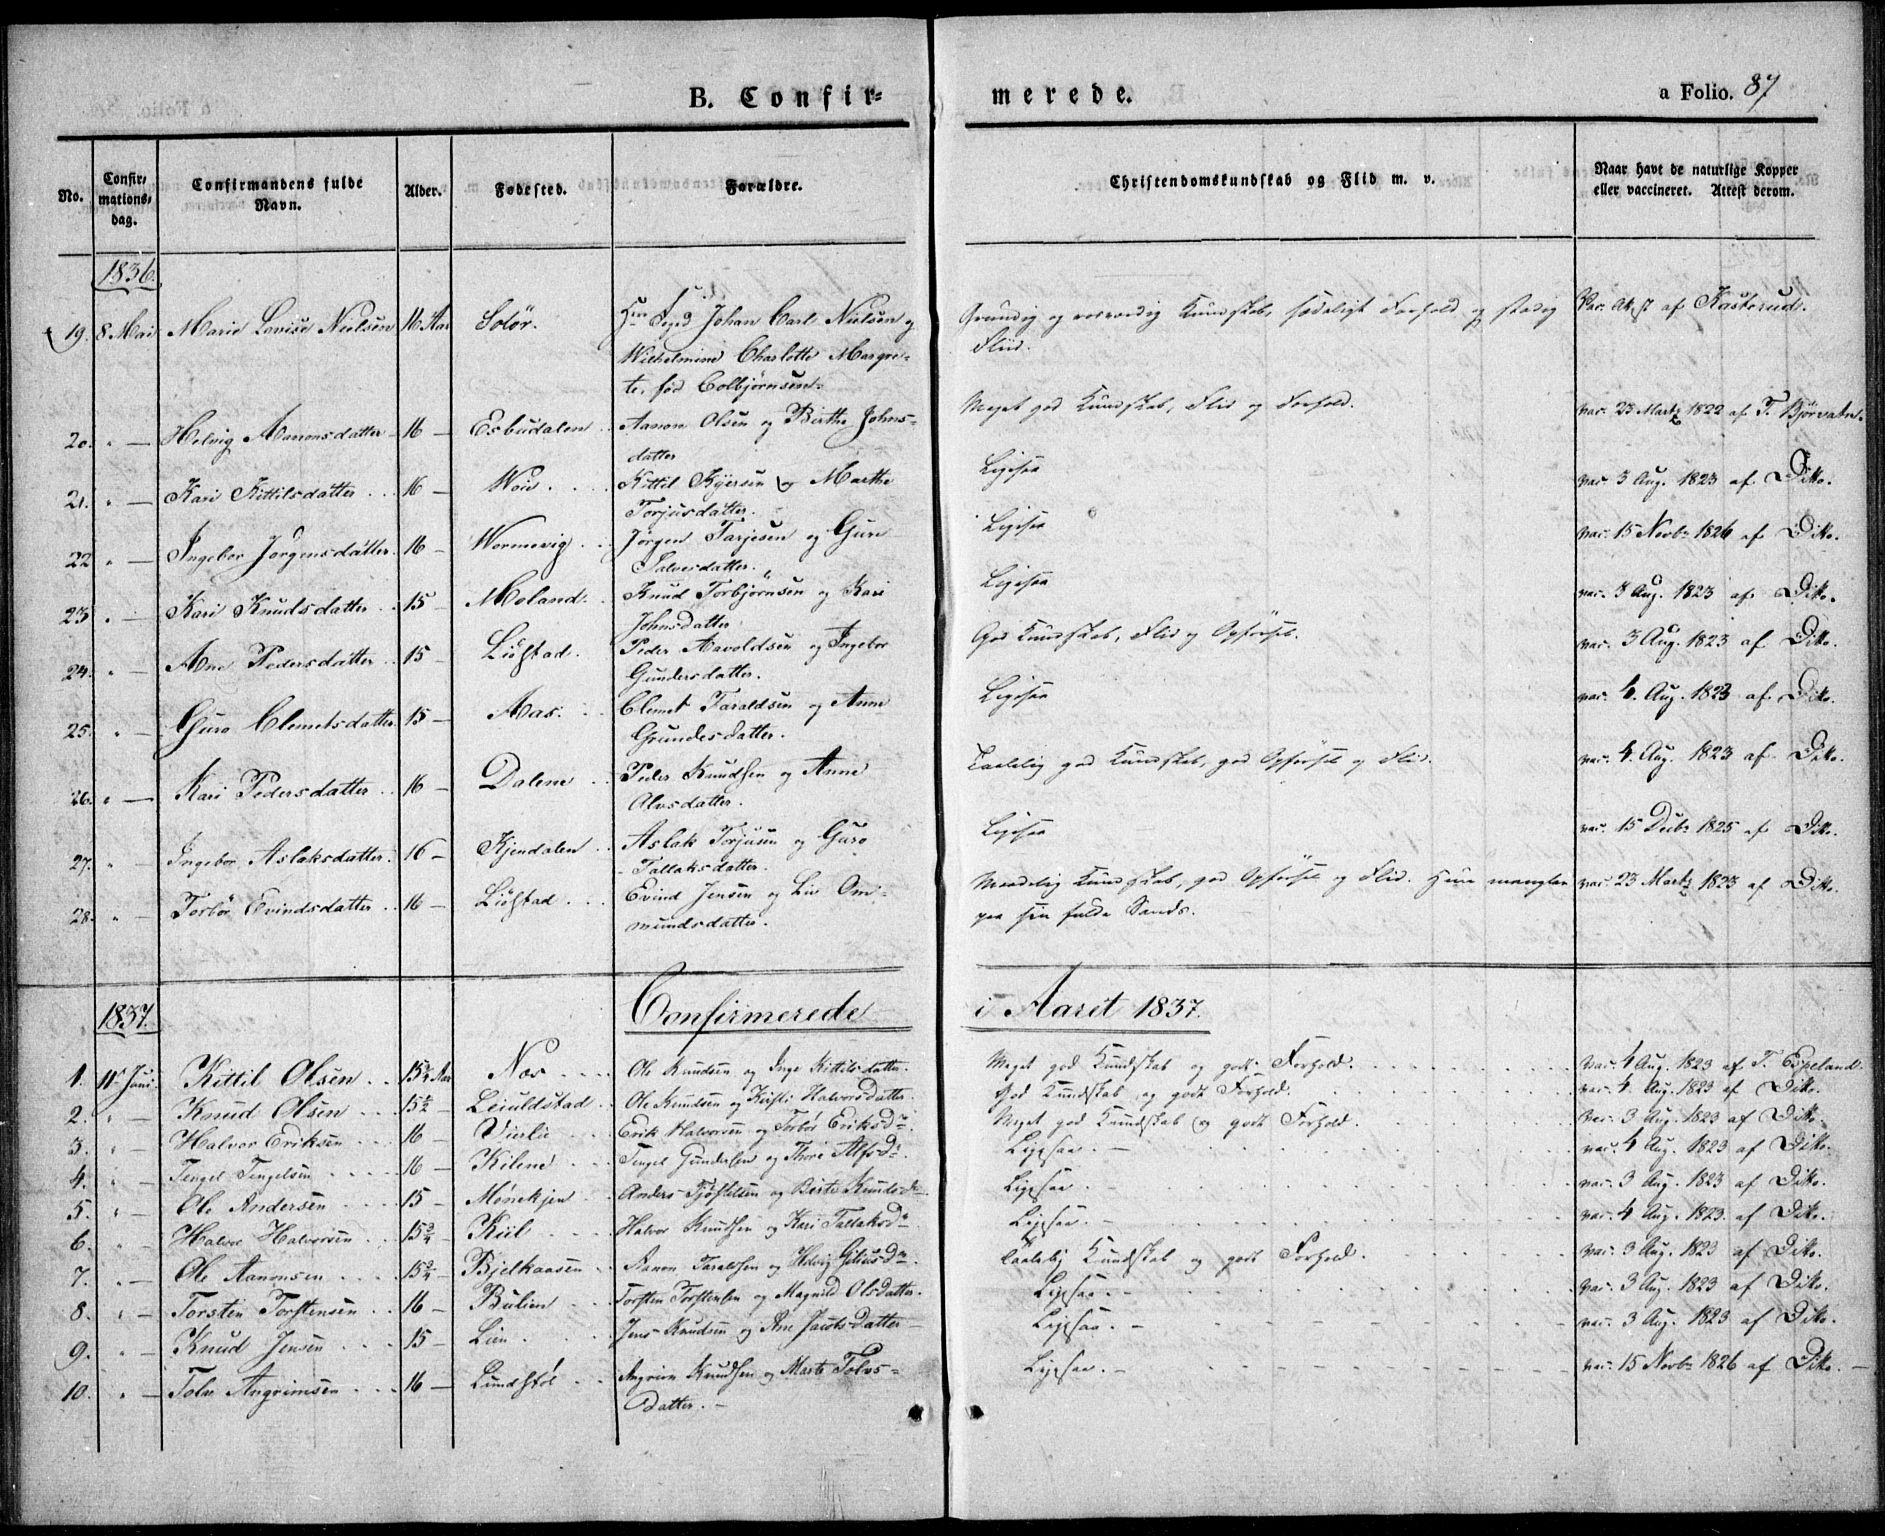 B. Confir= merede. a Folio. 87
No. Confir, mations, dag. Confirmandens fulde Navn. Alder. Fødested. Forældre. Christendomskundskab og Flid m. v. Naar havt de naturlige Kopper eller vaccineret. Attest derom.
1836.
19. 8 Mai Marie Lovise Nielsen 16 Aar Solör. Johan Carl Nielsen og Grundig og Kundskab, sædeligt Forhold og stadig Vac. At.st af Kasterud.
Wilhelmine Charlotte Margre- Fliid.
te, född Colbjörnsen.
20. " — Helvig Aanonsdatter 16 — Esbudalen Aanon Olsen og Birthe Johns- Meget god Kundskab, Flid og Forhold. vac. 23 Martz 1822 af T. Bjørvatn.
datter
21. " — Kari Kittilsdatter 16 — Woie Kittil og Marthe Ligesaa vac. 3 Aug. 1823 af Ditto.
Torjusdatter.
22 " — Ingebor Jørgensdatter. 16 — Wormevig Jørgen Tarjesen og Guro Ligesaa vac. 15 Novbr 1826 af Ditto.
Salvesdatter.
23. " — Kari Knudsdatter 15 Moland. Knud Torbjørnsen og Kari Ligesaa vac. 3 Aug. 1823 af Ditto.
Johnsdatter
24. " — Ane Pedersdatter 15 Löfstad. Peder Aavoldsen og Ingebor God Kundskab, Flid og Opførsel. vac. 3 Aug. 1823 af Ditto.
Gundersdatter.
25. " — Guro Clemetsdatter. 15 — Aas. Clemet Taraldsen og Anne Ligesaa vac. 4. Aug. 1823 af Ditto.
Grundesdatter.
26. " — Kari Pedersdatter 16 — Dalene Peder Knudsen og Anne Taalelig god Kundskab, god Opførsel og Flid. vac. 4. Aug. 1823 af Ditto.
Alvsdatter.
27. " — Ingebor Aslaksdatter. 16 — Kjendalen Aslak Torjusen og Guro Ligesaa vac. 15 Decbr 1825 af Ditto.
Tallaksdatter.
28. " — Torbør Evindsdatter 16 — Löfstad Evind Jensen og Liv Om- Maadelig Kundskab, god Opførsel og Flid. Hun mangler vac. 23 Martz 1823 af Ditto.
mundsdatter. paa sin fulde Sands.
1837. Confirmerede i Aaret 1837.
1. 11te Juni Kittil Olsen 15¾ Aar Næs Ole Knudsen og Inge Kittilsdatter. Meget god Kundskab og godt Forhold. vac. 4 Aug. 1823 af T. Espeland.
2. " — Knud Olsen 15½ Leiuldstad Ole Knudsen og Kirsti Halvorsdatter God Kundskab og godt Forhold. vac. 4. Aug. 1823 af Ditto.
3. " — Halvor Eriksen 16 — Viulie Erik Halvorsen og Torbør Eriksdr. Meget god Kundskab og godt Forhold. vac. 3 Aug. 1823 af Ditto.
4. " — Tengel Tengelsen 16 — Kilene Tengel Gundersen og Thore Alfsdr. Ligesaa. vac. 4 Aug. 1823 af Ditto.
5. " — Ole Andersen 15 — Mønekjen Anders Tjøstelsen og Birte Knudsdr. Ligesaa. vac. 3 Aug. 1823 af Ditto.
6. " Halvor Halvorsen 15¾ Kiil Halvor Knudsen og Kari Tallaksdr. Ligesaa. vac. 4 Aug. 1823. af Ditto.
7. " — Ole Aanonsen 15¾ Bjelkaasen Aanon Taraldsen og Helvig Giliusdr. Taalelig Kundskab og godt Forhold. vac. 3 Aug. 1823 af Ditto.
8. " — Torsten Torstensen 16 — Bulien Torsten Torstensen og Magnild Olsdatter. Ligesaa. vac. 3 Aug. 1823 af Ditto.
9. " — Knud Jensen 15 — Lien Jens Knudsen og Ane Jacobsdatter Ligesaa. vac. 3 Aug. 1823 af Ditto.
10. " — Tolv Angrimsen 16 — Lundstøl Angrim Knudsen og Marte Tolvs- Ligesaa. vac. 15 Novbr 1826 af Ditto.
datter.